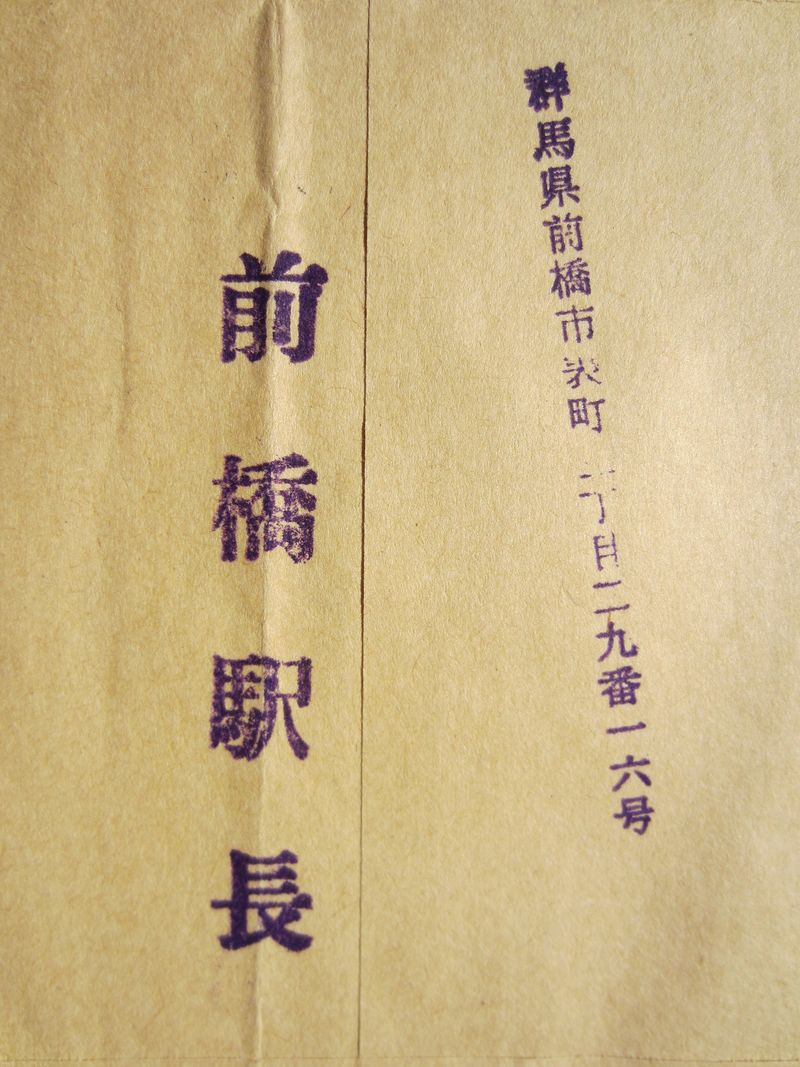 群馬県前橋市表町二丁目二九番一六号
前橋駅長